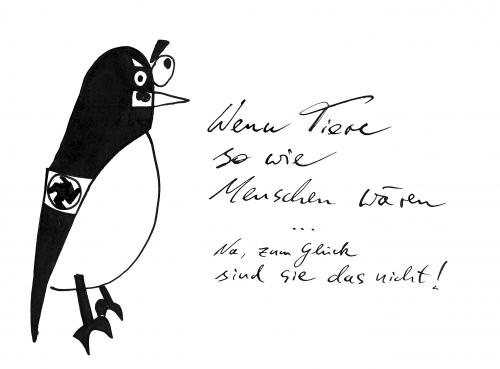 Wenn Tiere
so wie
Menschen wären
...
Na, zum Glück
sind sie das nicht!